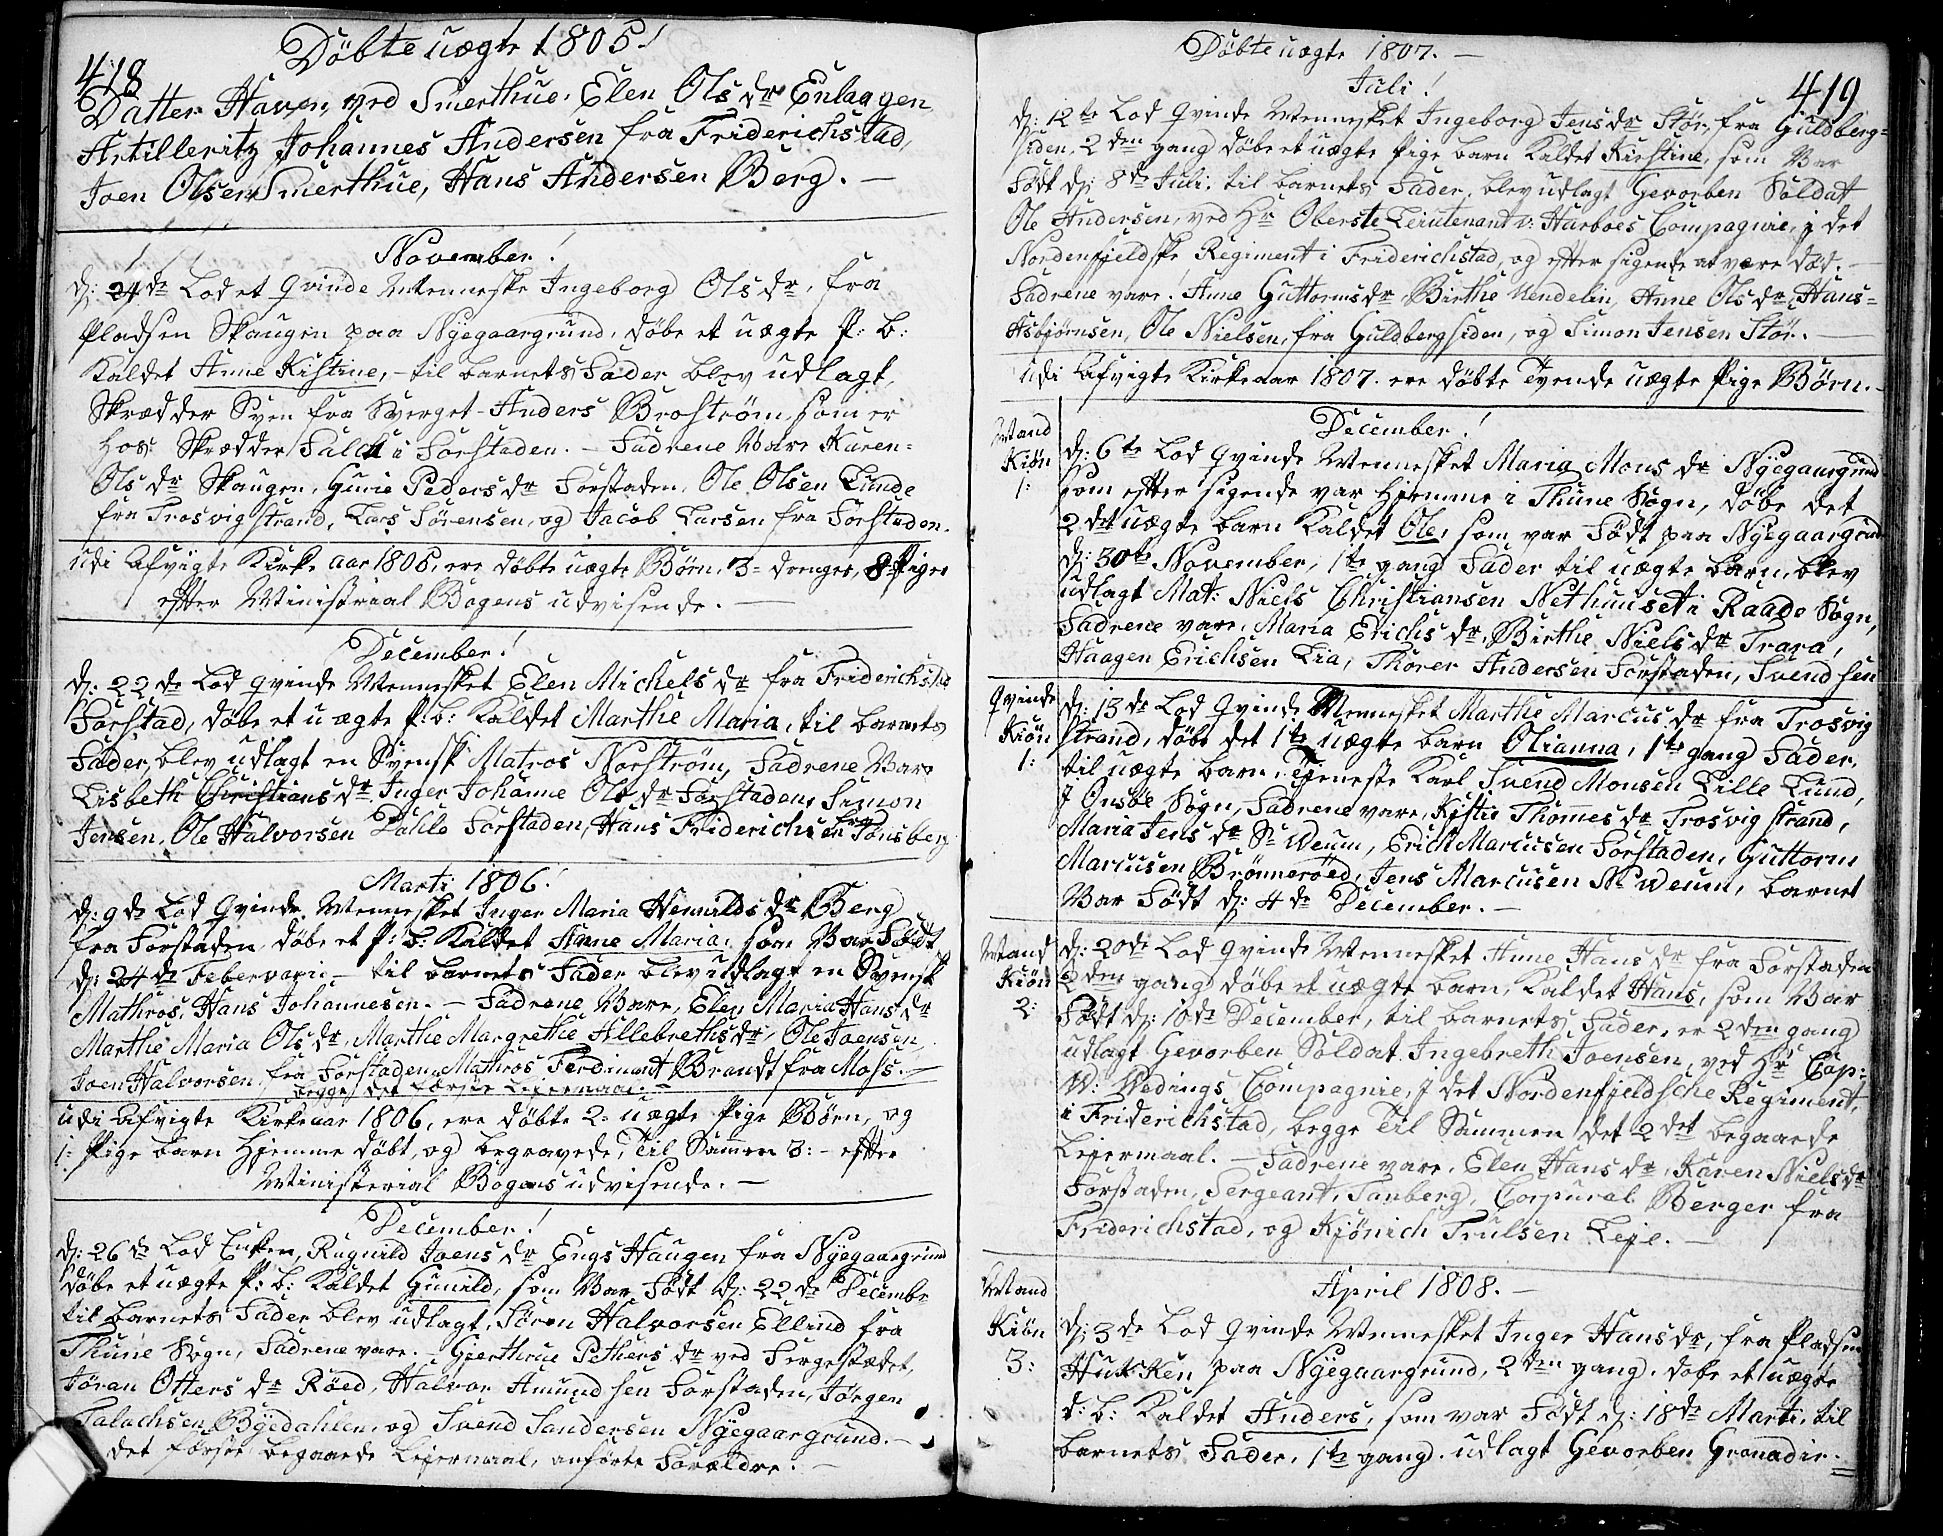 Döbte uægte 1805!
418
Datter Haven, ved Smerthue, Elen Ols dr Enlaagen,
Artilleritz Johannes Andersen fra Friderichstad,
Joen Olsen Smerthue, Hans Andersen Berg. —
November!
d: 24de Lod et Qvinde Menneske Ingeborg Ols dr, fra
Pladsen Skaugen paa Nÿegaargrund, döbe et uægte P: B:
Kaldet Anne Kistine, - til barnets Fader blev udlagt,
Skrædder Sven fra Sverget - Anders Broström, som er
hos Skrædder Falck i Forstaden. - Fadrene Vare Karen-
Ols dr Skaugen, Gurie Peders dr Forstaden, Ole Olsen Lunde
fra Trosvig strand, Lars Sörensen, og Jacob Larsen fra Forstaden.
udi Afvigte Kirke aar 1805, ere döbte uægte Börn, 3= drenge, 8= Piger
efter Ministerial Bogens udvisende. —
December!
d: 22de Lod qvinde Mennesket Elen Michels dr fra Friderichstad
Forstad, döbe et uægte P: b: Kaldet Marthe Maria, til barnets
Fader, blev udlagt en Svensk Matros Norström, Fadrene Vare
Lisbeth Christians dr, Inger Johanne Ols dr Forstaden, Simon
Jensen, Ole Halvorsen Forstaden, Hans Friderichsen fra Tonsberg
Marti 1806!
d: 9de Lod Qvinde Mennesket Inger Maria Hemilds dr Berg
fra Forstaden, döbe et P: B: Kaldet Anne Maria, som Var Födt
d: 24de Febervarii - til barnets Fader blev udlagt en Svensk
Mathros, Hans Johannesen. - Fadrene Vare, Elen Maria Hans dr
Marthe Maria Ols dr, Marthe Margrethe Allebreths dr, Ole Joensen,
Joen Halvorsen, fra Forstaden, Mathros Ferdinant Brandt fra Moss. -
begges det förste Leiermaal. -
udi Afvigte Kirkeaar 1806, ere döbte 2= uægte Pige Börn, og
1: Pige barn Hjemme döbt, og begravede, Til Sammen 3: - efter
Ministerial Bogens udvisende. -
December!
d: 26de Lod Enken, Rugnild Joens dr Engs Haugen fra Nÿegaargrund
döbe et uægte P: b: Kaldet Gunild, som Var Födt d: 22de Decembr
til barnets Fader blev udlagt, Sören Halvorsen Ellind fra
Thune Sogn, Fadrene vare. - Gjerthrue Pethers dr ved Fergestædet,
Jöran Otters dr Röed, Halvor Amundsen Forstaden, Jörgen
Bÿedahlen, og Svend Sandersen Nÿegaargrund. -
det förste begaaede Leiermaal, anförte Forældre. -
Döbte uægte 1807. —
419
Juli!
d: 12te Lod Qvinde Mennesket Ingeborg Jens dr Stör, fra Guldberg=
siden, 2den gang döbe et uægte Pige barn Kaldet Kirstine, som Var
Födt d: 8de Juli. til barnets Fader, blev udlagt Gevorben Soldat
Ole Andersen, ved Hr Oberste Leiutenant v: Harboes Compagnie, i det
Nordenfjeldske Regiment i Friderichstad, og efter sigende at være död. -
Fadrene vare. Anne Guttorms dr, Birthe Wendelin, Anne Ols dr, Hans
Asbjörnsen, Ole Nielsen, fra Guldbergsiden, og Simon Jensen Stör. -
udi Afvigte Kirkeaar 1807. ere döbte Tvende uægte Pige Börn. -
December!
Mand
Kiön
1:
d: 6te Lod Qvinde Mennesket Maria Mons dr Nÿegaargrund
som efter sigende var hjemme i Thune Sogn, döbe det
2det uægte barn Kaldet Ole, som var Födt paa Nÿegaargrund
d: 30te November, 1te gang Fader til uægte barn, blev
udlagt Mat: Niels Christiansen Nethuuset i Raade Sogn,
Fadrene vare, Maria Erichs dr, Birthe Niels dr Trara,
Haagen Erichsen Lia, Thorer Andersen Forstaden, Svendsen
Qvinde
Kiön
1:
d: 13de Lod Qvinde Mennesket Marthe Marcus dr fra Trosvig
strand, döbe det 1te uægte barn Olianna, 1te gang Fader,
til uægte barn, Tjeneste Karl Svend Monsen Lille Lund,
J Onsöe Sogn, Fadrene vare, Kistie Thomes dr Trosvig strand,
Maria Jens dr Sr Weum, Erich Marcusen Forstaden, Guttorm
Marcusen Brönneröed, Jens Marcusen Nr Weum, barnet
Var Födt d: 4de December. -
Mand
Kiön
2:
d: 20de Lod Qvinde Mennesket Anne Hans dr fra Forstaden
2den gang döbe et uægte barn, Kaldet Hans, som Var
Födt d: 10de December, til barnets Fader, er 2den gang
udlagt Gevorben Soldat Ingebreth Joensen, ved Hr Cap:
W: Wedings Compagnie, J det Nordenfjeldsche Regiment,
i Friderichstad, begge Til Sammen det 2det begaaede
Leiermaal. - Fadrene vare, Elen Hans dr, Karen Niels dr
Forstaden, Sergeant, Tanberg, Corpural Berger fra
Friderichstad, og Kjönich Trulsen Leje. -
April 1808. -
Mand
Kiön
3:
d: 3de Lod Qvinde Mennesket Inger Hans dr, fra Pladsen
Hutsken paa Nÿegaargrund, 2den gang. döbe et uægte
d: b: Kaldet Anders, som var Födt d: 18de Marti, til
barnets Fader, 1te gang. udlagt Gevorben Granadir. =